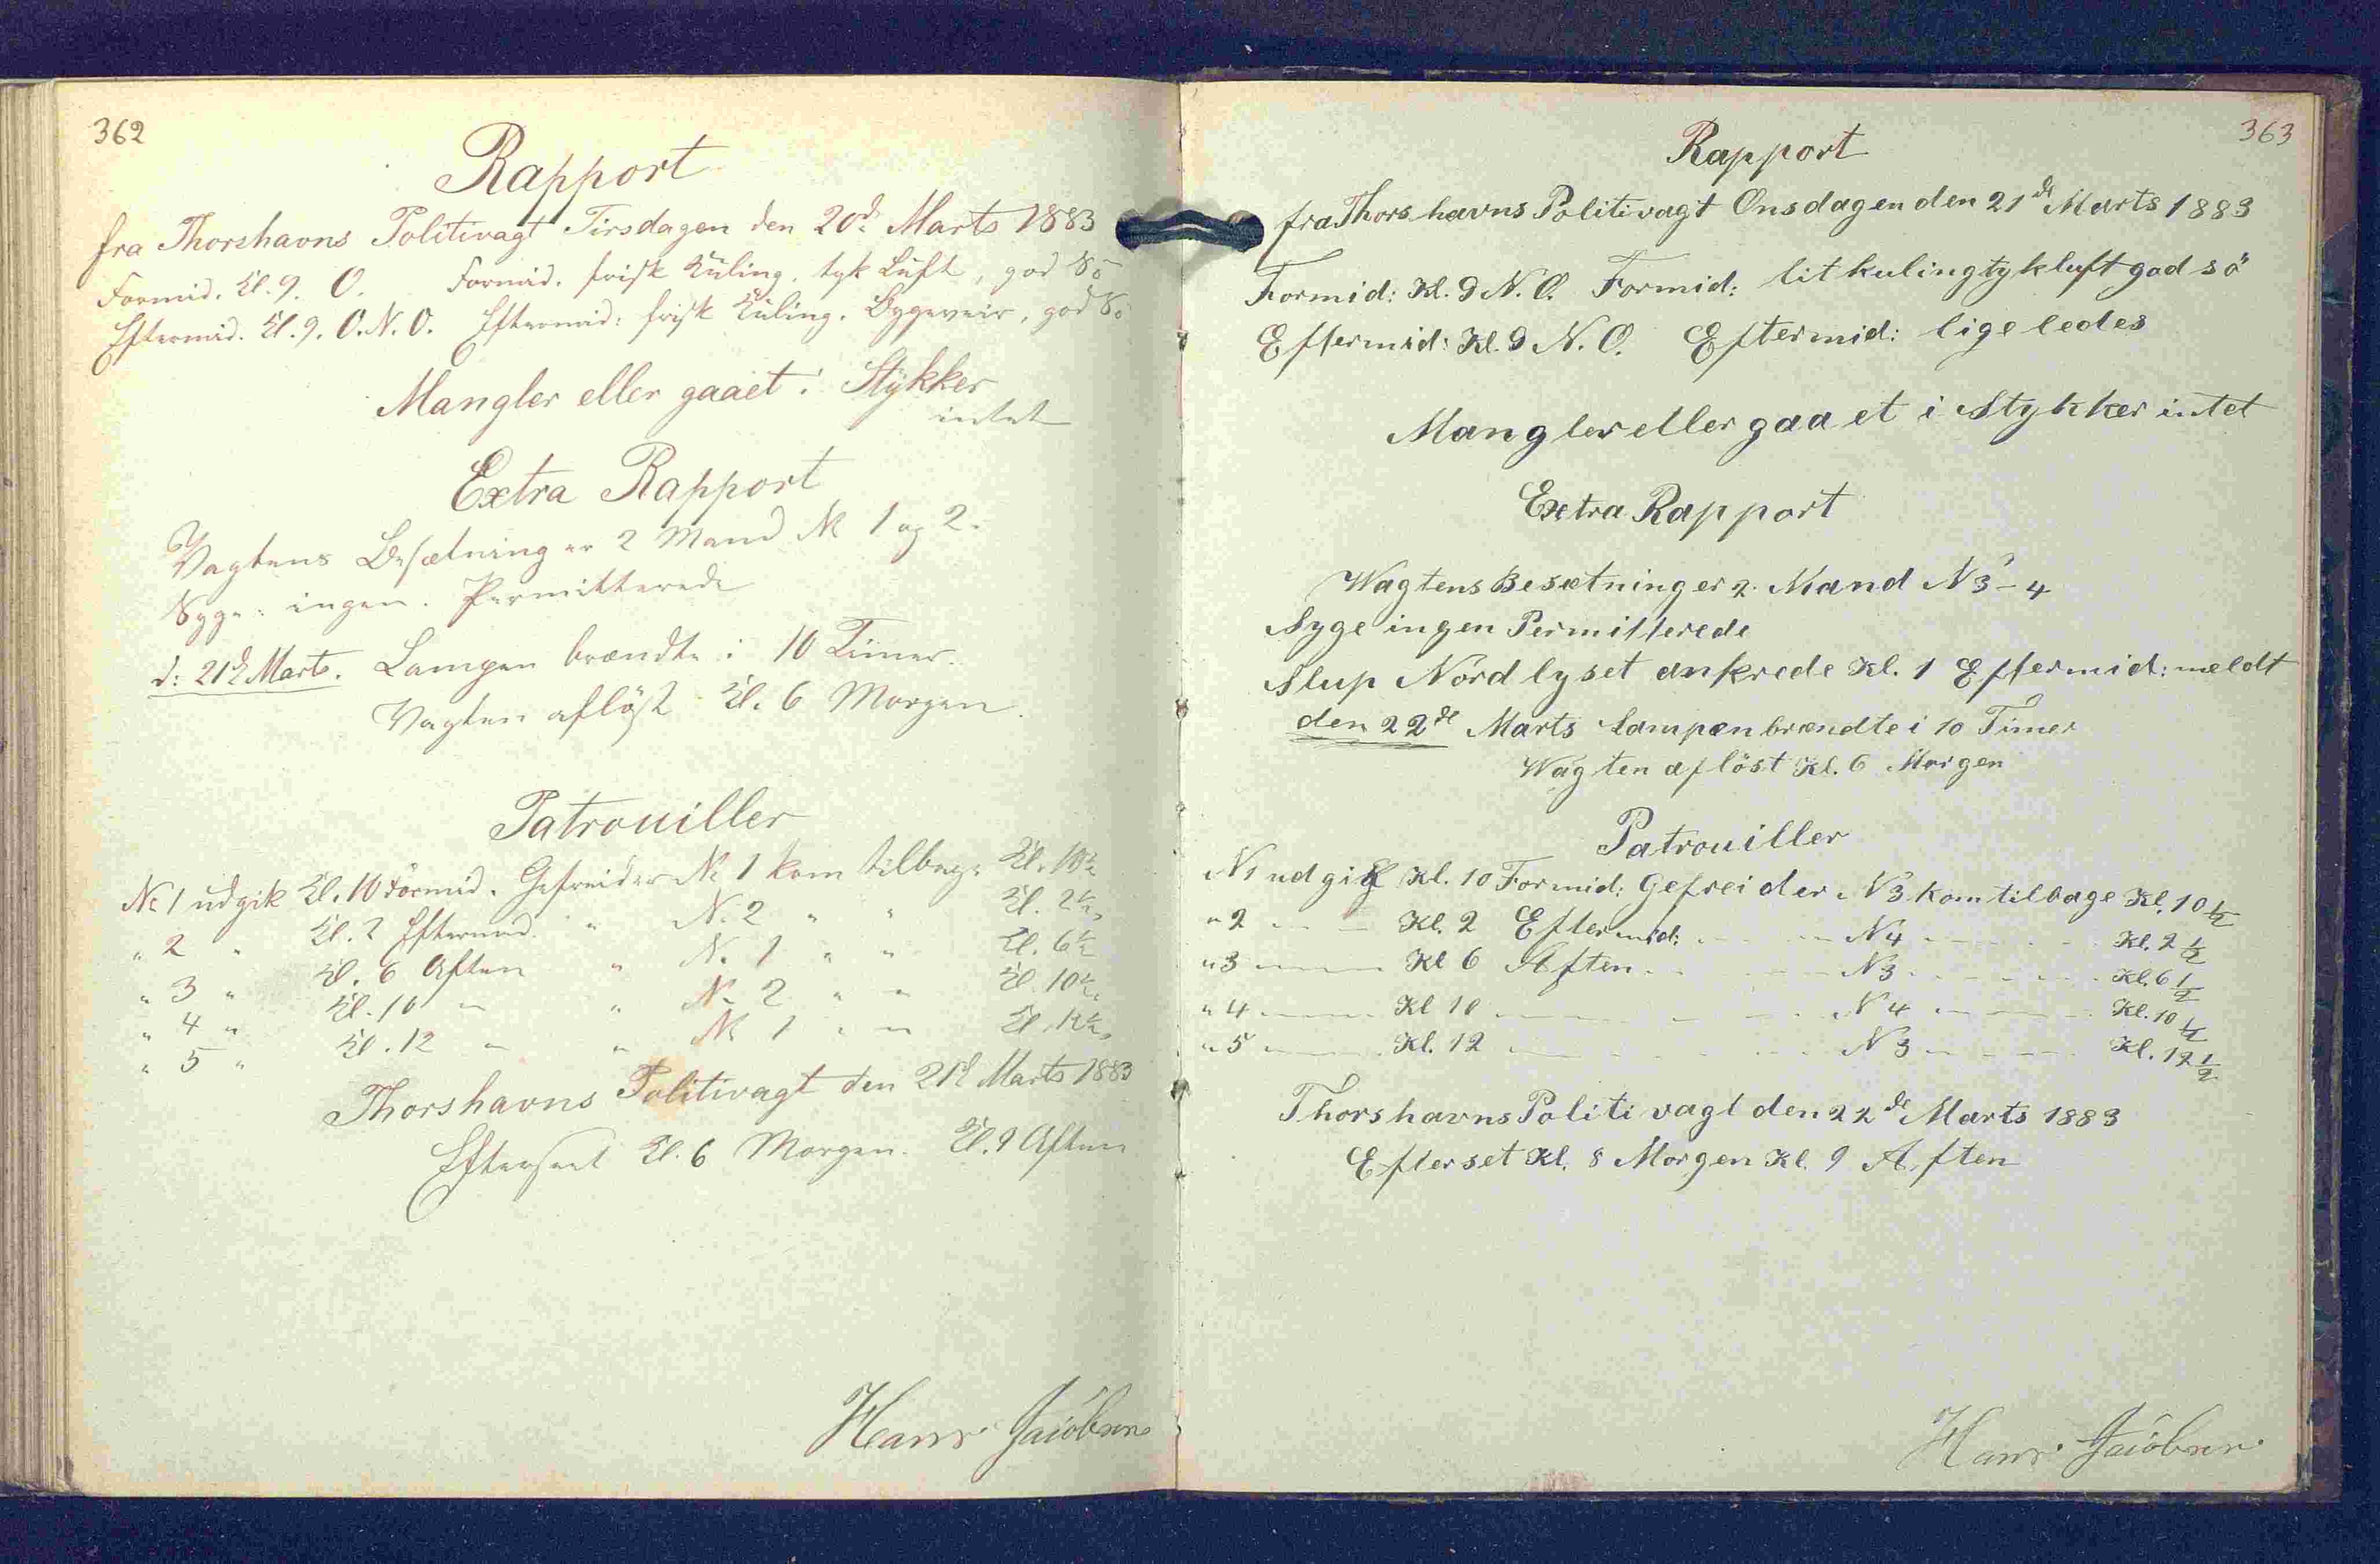 362
Rapport
fra Thorshavns Politivagt Tirsdagen den 20de Marts 1883
Formid. Kl. 9. O. Formid. frisk Kuling, tyk Luft, god Sö
Eftermid. Kl. 9. O.N.O. Eftermid: frisk Kuling. Bygeveir, god Sö
Mangler eller gaaet i Stykker
intet
Extra Rapport
Vagtens Besætning er 2 Mand No 1 og 2.
Syge: ingen. Permitterede
d: 21de Marts. Lampen brændte i 10 Timer.
Vagten aflöst Kl. 6 Morgen.
Patrouiller
No 1 udgik Kl. 10 Formid. Gefreider No 1 kom tilbage Kl. 10½
" 2 " Kl. 2 Eftermid. " No. 2 " " Kl. 2½
" 3 " Kl. 6 Aften " No. 1 " " Kl. 6½
" 4 " Kl. 10 " " No. 2 " " Kl. 10½
" 5 " Kl. 12 " " No 1 " " Kl. 12½
Thorshavns Politivagt den 21de Marts 1883
Efterseet Kl. 6 Morgen. Kl. 9 Aften
Hans Jacobsen
363
Rapport
fra Thorshavns Politivagt Onsdagen den 21de Marts 1883
Formid: Kl. 9 N. O. Formid: lit kuling tyk luft god sö
Eftermid: Kl. 9 N. O. Eftermid: ligeledes
Mangler eller gaaet i Stykker intet
Extra Rapport
Wagtens Besætning er 2. Mand No 3 - 4
Syge ingen Permitterede
Slup Nordlyset ankrede Kl. 1 Eftermid: meldt
den 22de Marts Lampen brændte i 10 Timer
Wagten aflöst Kl. 6 Morgen
Patrouiller
N1 udgik Kl. 10 Formid: Gefreider No 3 kom tilbage Kl. 10½
" 2 — — Kl. 2 Eftermid: — — N4 — — Kl. 2½
" 3 — Kl 6 Aften — — N3 — — Kl. 6½
" 4 — Kl 10 — — N4 — — Kl. 10½
" 5 — Kl. 12 — — N3 — — Kl. 12½
Thorshavns Politivagt den 22de Marts 1883
Efterset Kl. 8 Morgen Kl. 9 Aften
Hans Jacobsen